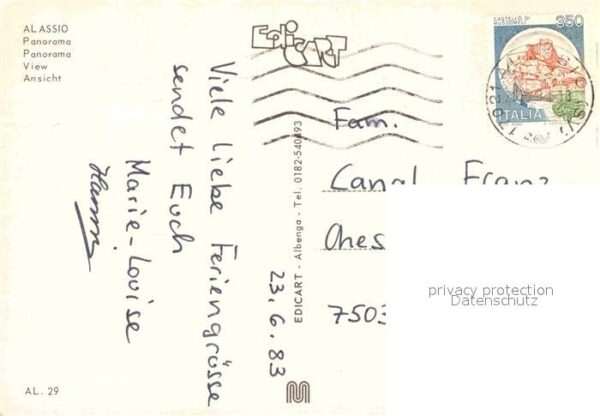 ALASSIO
Panorama
Panorama
View
Ansicht
EdiCART
CASTELLO DI
MUSSOMELI
350
ITALIA
17021
Viele liebe Feriengrüsse
sendet Euch
Marie-Louise
23.6.83
EDICART - Albenga - Tel. 0182-540493
Fam.
Canal Franz
Ches
7503
privacy protection
Datenschutz
AL. 29